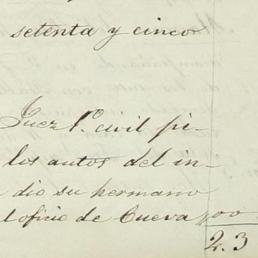 setenta y cinco
Juez 1º civil pi-
los autos del in-
dio su hermano
oficio de Cueva ,00
2.3